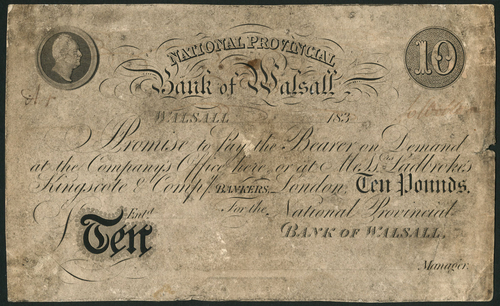 NATIONAL PROVINCIAL
10
Bank of Walsall.
WALSALL 183
I Promise to Pay the Bearer on Demand
at the Companys Office here, or at Mess.rs Ladbrokes
Kingscote & Comp.y BANKERS London, Ten Pounds.
For the National Provincial
£Ten Ent.d
BANK OF WALSALL.
Manager